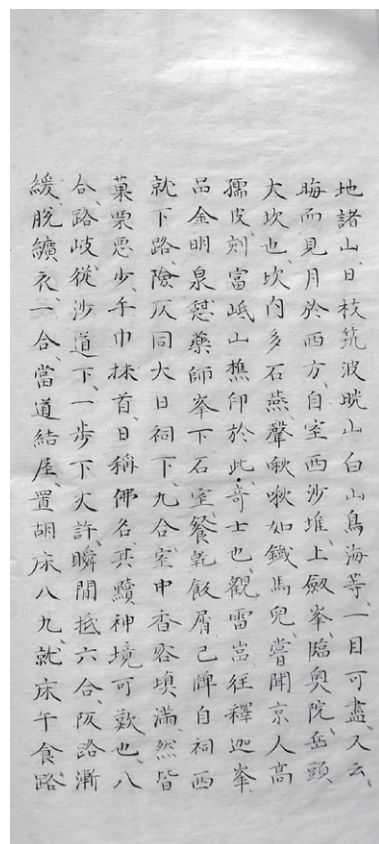 地諸山、日枝筑波晄山白山鳥海等、一目可盡、又云、
晦而見月於西方、自室西沙堆上、劔峯臨奧院岳頭、
大坎也、坎内多石燕、聲啾啾如鐵馬兒、嘗聞京人高
孺皮刻富岻山樵印於此、奇士也、觀雷岩、往釋迦峯、
品金明泉、憩藥師峯下石室、餐乾飯屑、已牌自祠西
就下路、險仄同大日祠下、九合室中香客塡滿、然皆
菓栗思少年巾抹首、日稱佛名其黷神境可歎也、八
合、路岐從沙道下、一步下丈許、瞬間抵六合、阪路漸
緩、脫纊衣、一合、當道結屋、置胡床八九、就床午食、路